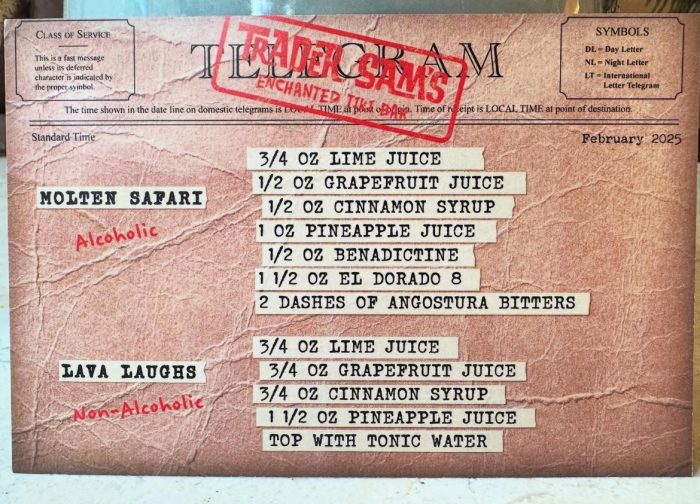 CLASS OF SERVICE
This is a fast message
unless its deferred
character is indicated by
the proper symbol.
TELEGRAM
TRADER SAM'S
ENCHANTED TIKI BAR
SYMBOLS
DL = Day Letter
NL = Night Letter
LT = International
Letter Telegram
The time shown in the date line on domestic telegrams is LOCAL TIME at point of origin. Time of receipt is LOCAL TIME at point of destination.
Standard Time
February 2025
MOLTEN SAFARI
Alcoholic
3/4 OZ LIME JUICE
1/2 OZ GRAPEFRUIT JUICE
1/2 OZ CINNAMON SYRUP
1 OZ PINEAPPLE JUICE
1/2 OZ BENADICTINE
1 1/2 OZ EL DORADO 8
2 DASHES OF ANGOSTURA BITTERS
LAVA LAUGHS
Non-Alcoholic
3/4 OZ LIME JUICE
3/4 OZ GRAPEFRUIT JUICE
3/4 OZ CINNAMON SYRUP
1 1/2 OZ PINEAPPLE JUICE
TOP WITH TONIC WATER